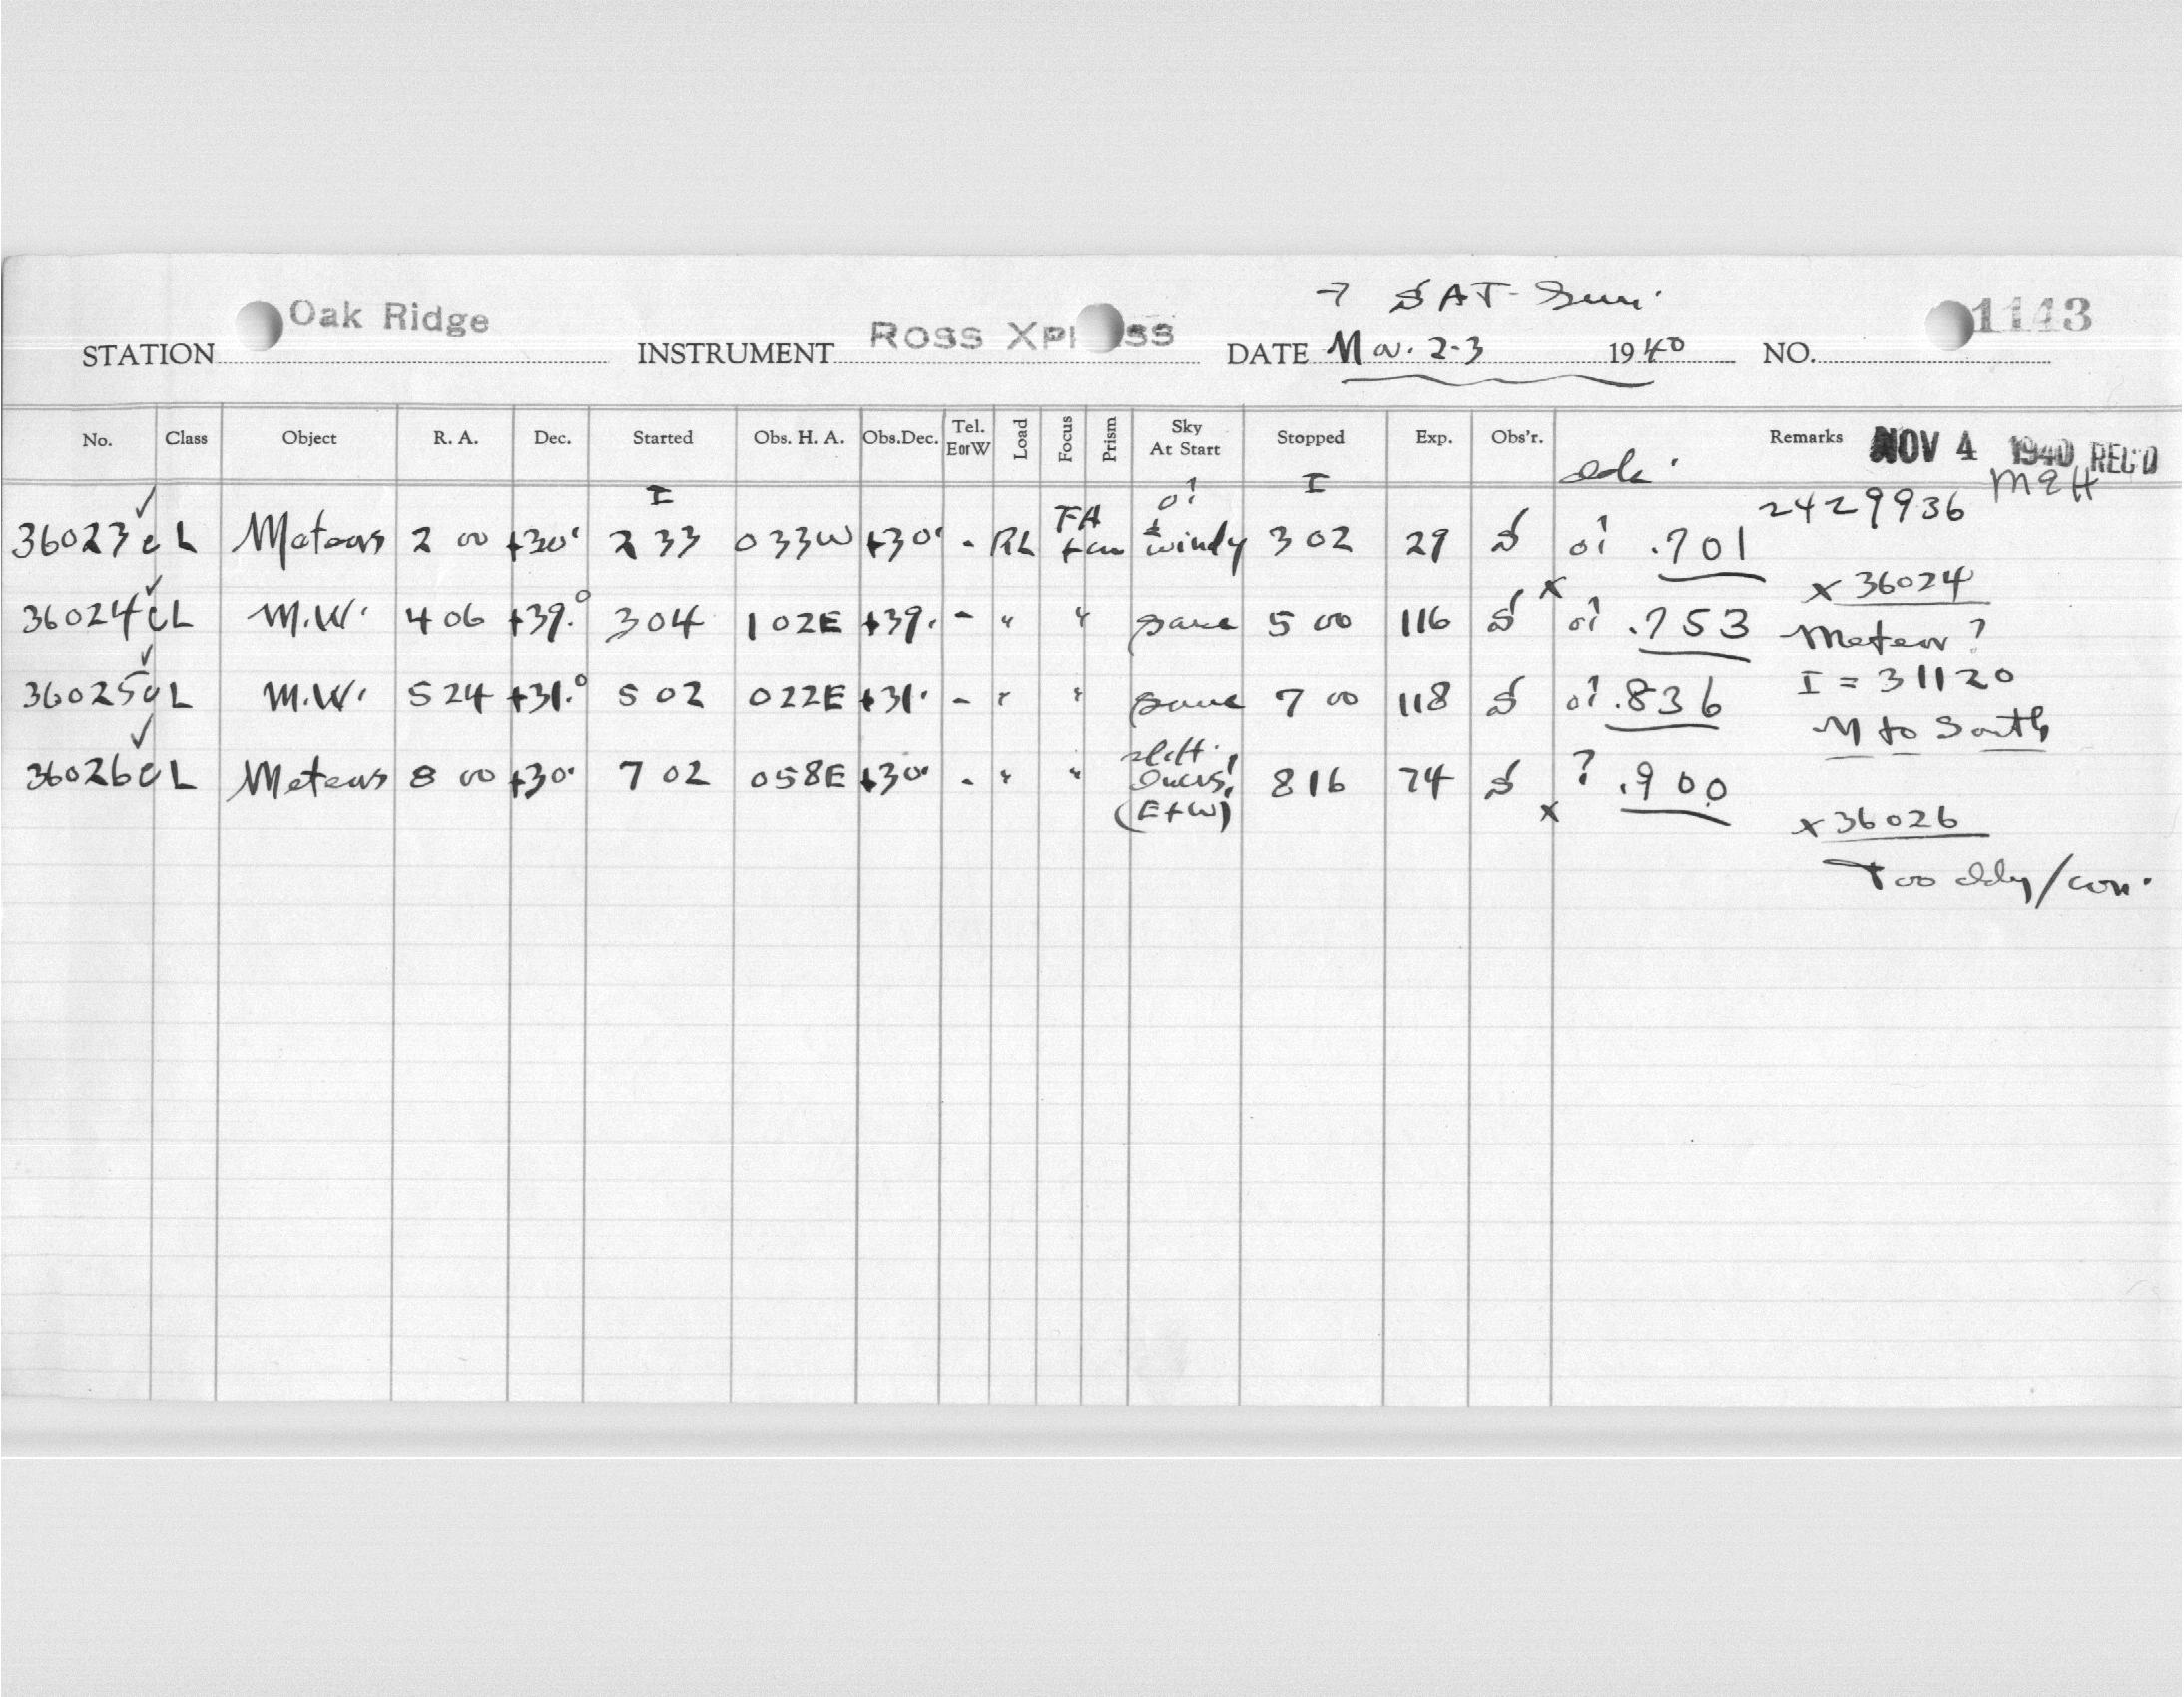 → SAT-Sun.
STATION Oak Ridge INSTRUMENT Ross Xpress DATE Nov. 2-3 1940 NO. 1143
No. Class Object R. A. Dec. Started Obs. H. A. Obs.Dec. Tel. EorW Load Focus Prism Sky At Start Stopped Exp. Obs'r. Remarks NOV 4 1940 REC'D
I I MQH
2429936
36023 c L Meteors 2 00 +30° 2 33 033W +30° - RL FA windy 3 02 29 S .701
x 36024
36024 c L M.W. 4 06 +39.° 3 04 102E +39. - " " same 5 00 116 S x .753 Meteor ?
36025 c L M.W. 5 24 +31.° 5 02 022E +31. - " " same 7 00 118 S .836 I = 31120
M to South
36026 c L Meteors 8 00 +30° 7 02 058E +30° - " " (E+W) 8 16 74 S x ? .900
x 36026
Too cldy/con.